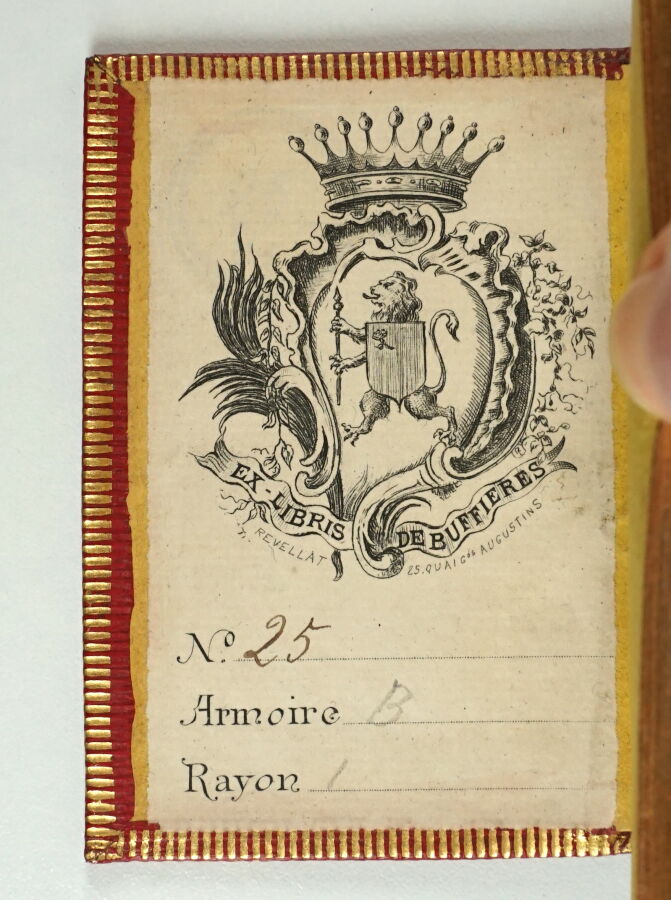 EX-LIBRIS DE BUFFIERES
REVELLAT 25.QUAI Gds AUGUSTINS
No 25
Armoire B
Rayon 1